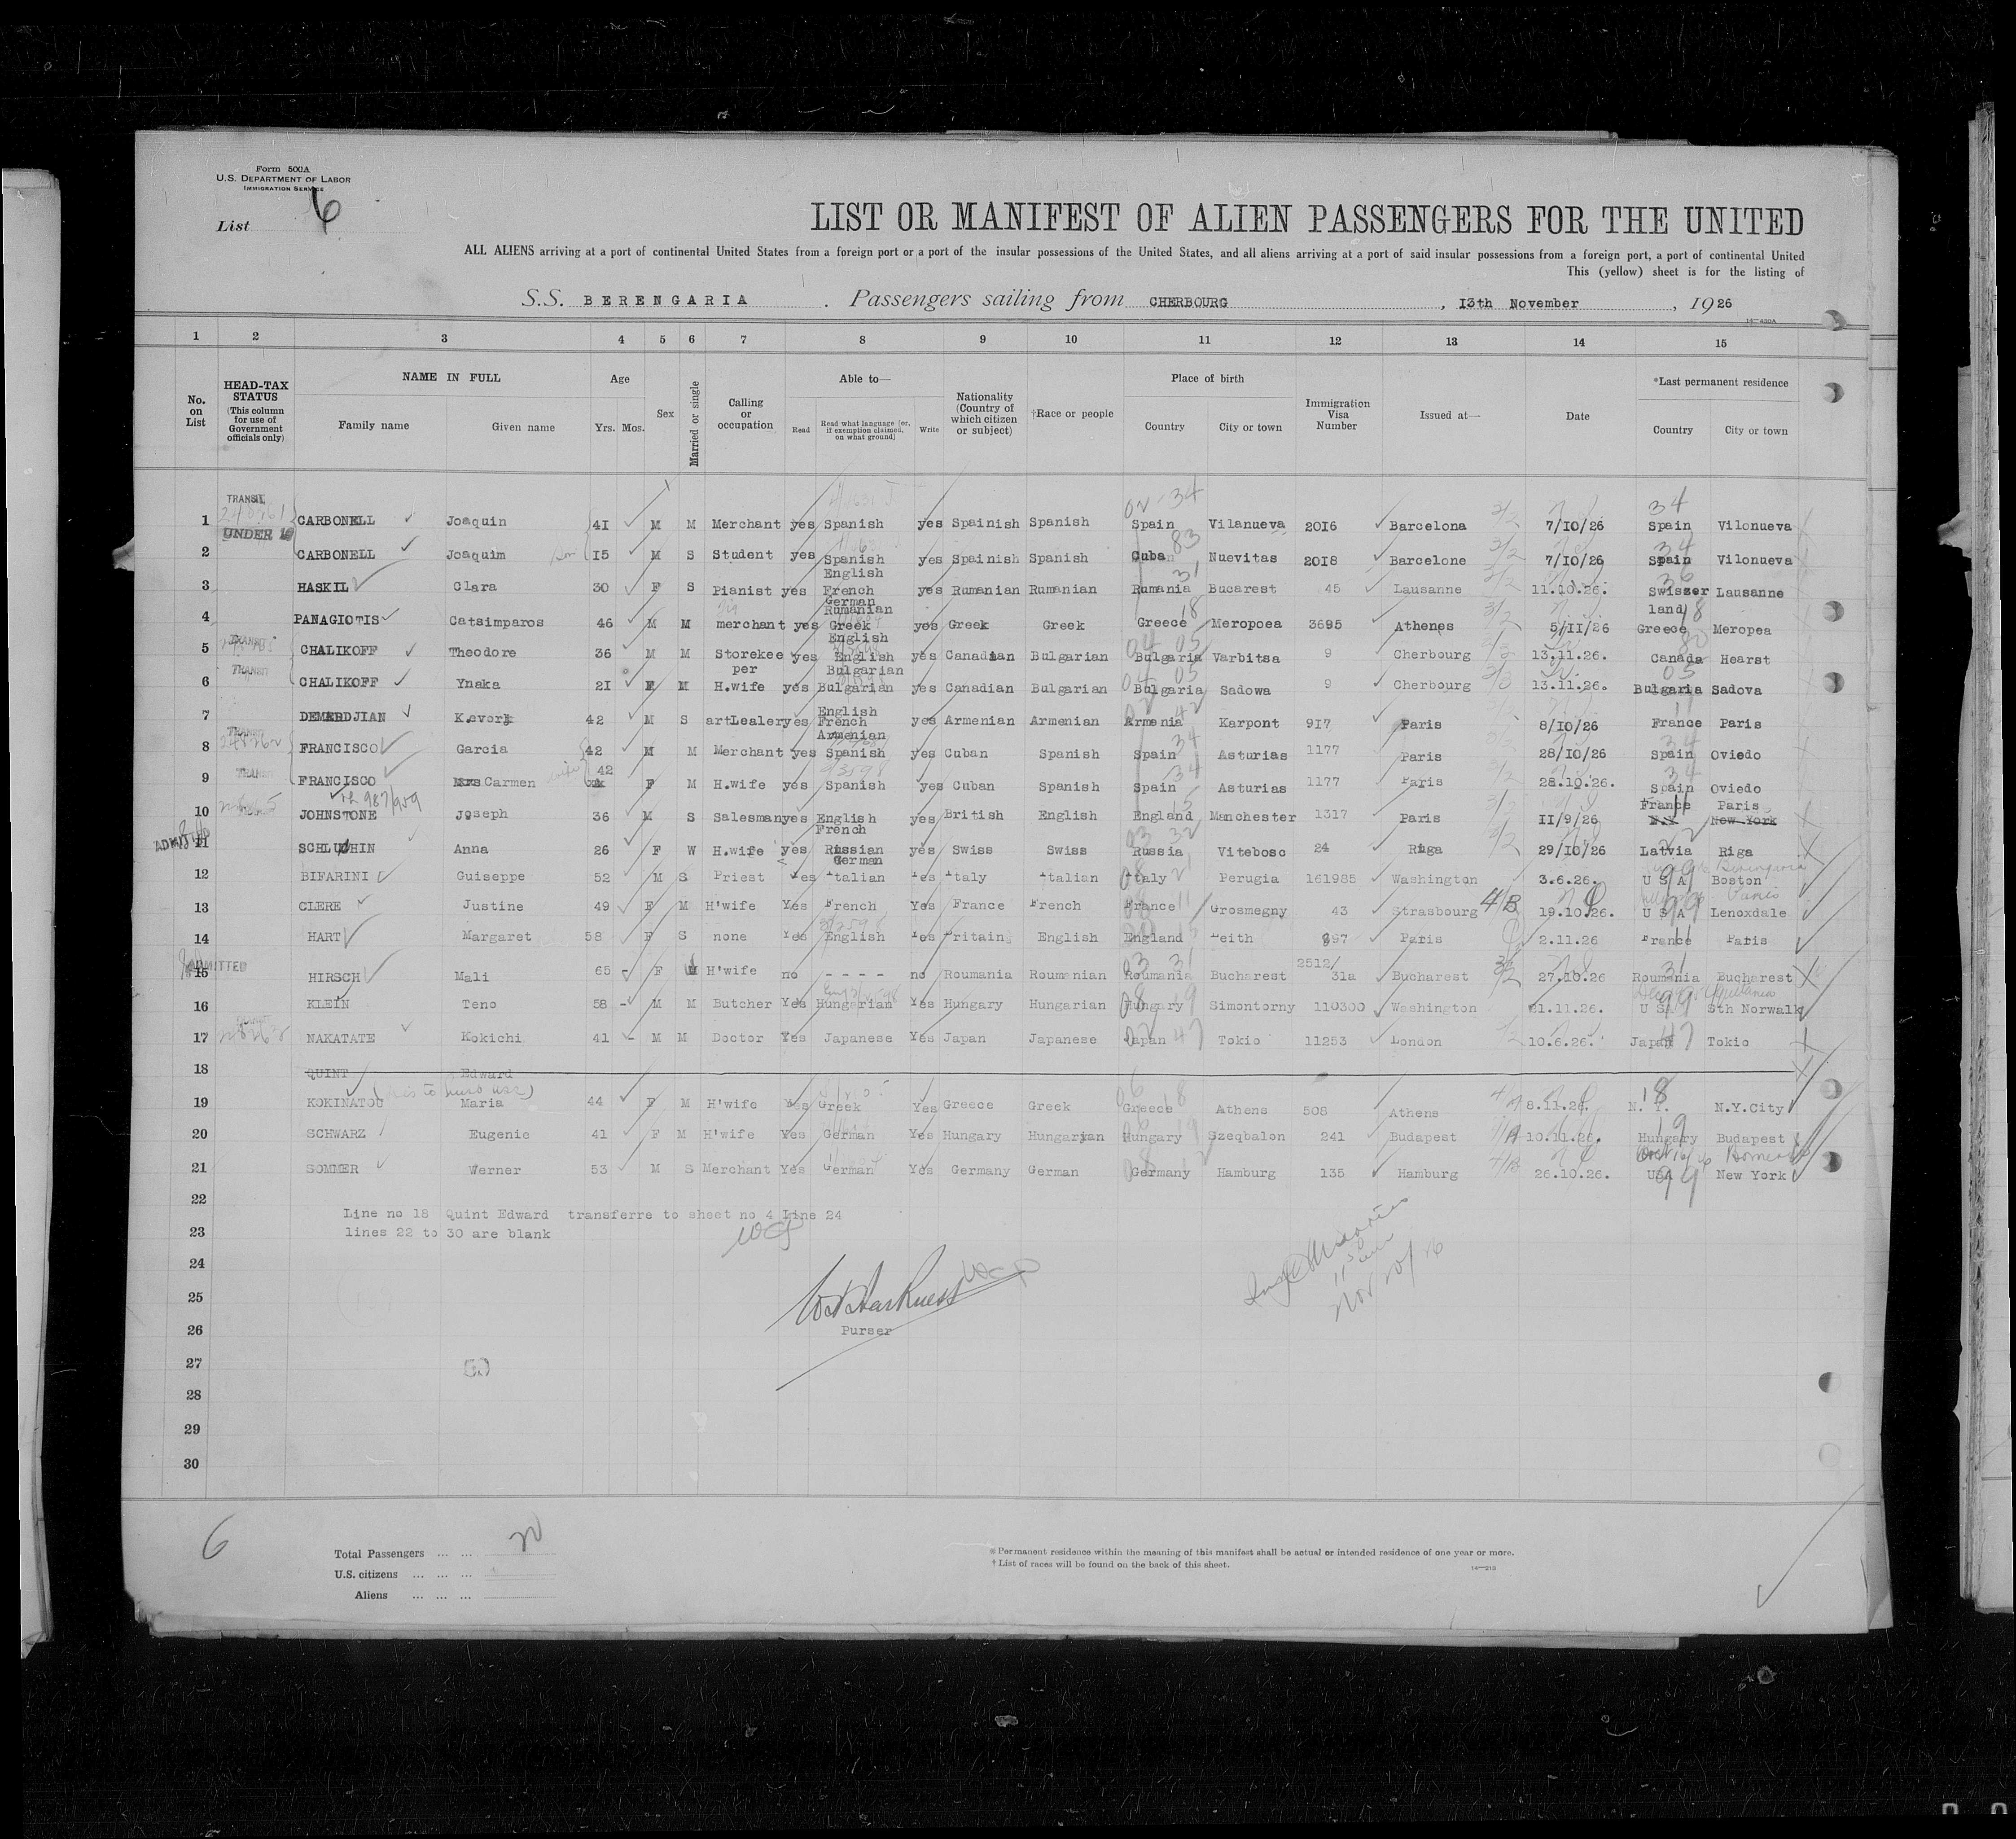 Form 500A
U.S. DEPARTMENT OF LABOR
IMMIGRATION SERVICE
List 6
LIST OR MANIFEST OF ALIEN PASSENGERS FOR THE UNITED
ALL ALIENS arriving at a port of continental United States from a foreign port or a port of the insular possessions of the United States, and all aliens arriving at a port of said insular possessions from a foreign port, a port of continental United
This (yellow) sheet is for the listing of
S.S. BERENGARIA . Passengers sailing from CHERBOURG , 13th November , 1926
14—430A
1 2 3 4 5 6 7 8 9 10 11 12 13 14 15
No. on List
HEAD-TAX STATUS (This column for use of Government officials only)
NAME IN FULL
Family name Given name
Age
Yrs. Mos.
Sex
Married or single
Calling or occupation
Able to—
Read Read what language (or, if exemption claimed, on what ground) Write
Nationality (Country of which citizen or subject)
†Race or people
Place of birth
Country City or town
Immigration Visa Number
Issued at—
Date
*Last permanent residence
Country City or town
TRANSIT
1 CARBONELL Joaquin 41 M M Merchant yes Spanish yes Spainish Spanish Spain Vilanueva 2016 Barcelona 7/10/26 Spain Vilonueva
UNDER 16
2 CARBONELL Joaquim son 15 M S Student yes Spanish yes Spainish Spanish Cuba Nuevitas 2018 Barcelone 7/10/26 Spain Vilonueva
English
3 HASKIL Clara 30 F S Pianist yes French yes Rumanian Rumanian Rumania Bucarest 45 Lausanne 11.10.26. Swiszer Lausanne
German land
Rumanian
4 PANAGIOTIS Catsimparos 46 M M merchant yes Greek yes Greek Greek Greece Meropoea 3695 Athenes 5/11/26 Greece Meropea
English
TRANSIT
5 CHALIKOFF Theodore 36 M M Storekee yes English yes Canadian Bulgarian Bulgaria Varbitsa 9 Cherbourg 13.11.26. Canada Hearst
per Bulgarian
TRANSIT
6 CHALIKOFF Ynaka 21 F M H.wife yes Bulgarian yes Canadian Bulgarian Bulgaria Sadowa 9 Cherbourg 13.11.26. Bulgaria Sadova
English
7 DEMARDJIAN Kevork 42 M S artLealer yes French yes Armenian Armenian Armenia Karpont 917 Paris 8/10/26 France Paris
Armenian
TRANSIT
8 FRANCISCO Garcia 42 M M Merchant yes Spanish yes Cuban Spanish Spain Asturias 1177 Paris 28/10/26 Spain Oviedo
42
TRANSIT
9 FRANCISCO Mrs Carmen wife F M H.wife yes Spanish yes Cuban Spanish Spain Asturias 1177 Paris 28.10.26. Spain Oviedo
France Paris
10 JOHNSTONE Joseph 36 M S Salesman yes English yes British English England Manchester 1317 Paris 11/9/26 N.Y New York
French
ADMITTED
11 SCHLUCHIN Anna 26 F W H.wife yes Russian yes Swiss Swiss Russia Vitebosc 24 Riga 29/10/26 Latvia Riga
German
12 BIFARINI Guiseppe 52 M S Priest Yes Italian Yes Italy Italian Italy Perugia 161985 Washington 3.6.26. U S A Boston
13 CLERE Justine 49 F M H'wife Yes French Yes France French France Grosmegny 43 Strasbourg 4/B 19.10.26. U S A Lenoxdale
14 HART Margaret 58 F S none Yes English Yes Britain English England Leith 897 Paris 2.11.26 France Paris
ADMITTED
15 HIRSCH Mali 65 F H'wife no - - - - no Roumania Roumanian Roumania Bucharest 2512/31a Bucharest 27.10.26 Roumania Bucharest
16 KLEIN Teno 58 M M Butcher Yes Hungarian Yes Hungary Hungarian Hungary Simontorny 110300 Washington 21.11.26. U S A Sth Norwalk
17 NAKATATE Kokichi 41 M M Doctor Yes Japanese Yes Japan Japanese Japan Tokio 11253 London 10.6.26. Japan Tokio
18 QUINT Edward
19 KOKINATOU Maria 44 F M H'wife Yes Greek Yes Greece Greek Greece Athens 508 Athens 8.11.26. N. Y. N.Y.City
20 SCHWARZ Eugenie 41 F M H'wife Yes German Yes Hungary Hungarian Hungary Szeqbalon 241 Budapest 10.11.26. Hungary Budapest
21 SOMMER Werner 53 M S Merchant Yes German Yes Germany German Germany Hamburg 135 Hamburg 26.10.26. USA New York
22
Line no 18 Quint Edward transferre to sheet no 4 Line 24
23 lines 22 to 30 are blank
24
25
26 Purser
27
28
29
30
6
Total Passengers ... ... 20
U.S. citizens ... ... ...
Aliens ... ... ...
* Permanent residence within the meaning of this manifest shall be actual or intended residence of one year or more.
† List of races will be found on the back of this sheet.
14—213